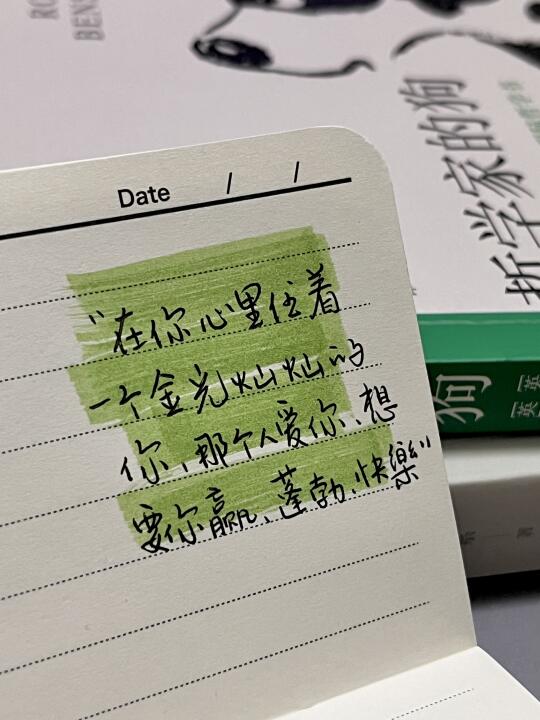 RO
BEN
哲学家的狗
Date / /
“在你心里住着
一个金光灿灿的
你、那个人爱你、想
要你赢、蓬勃、快樂”
狗
[英]
[英]